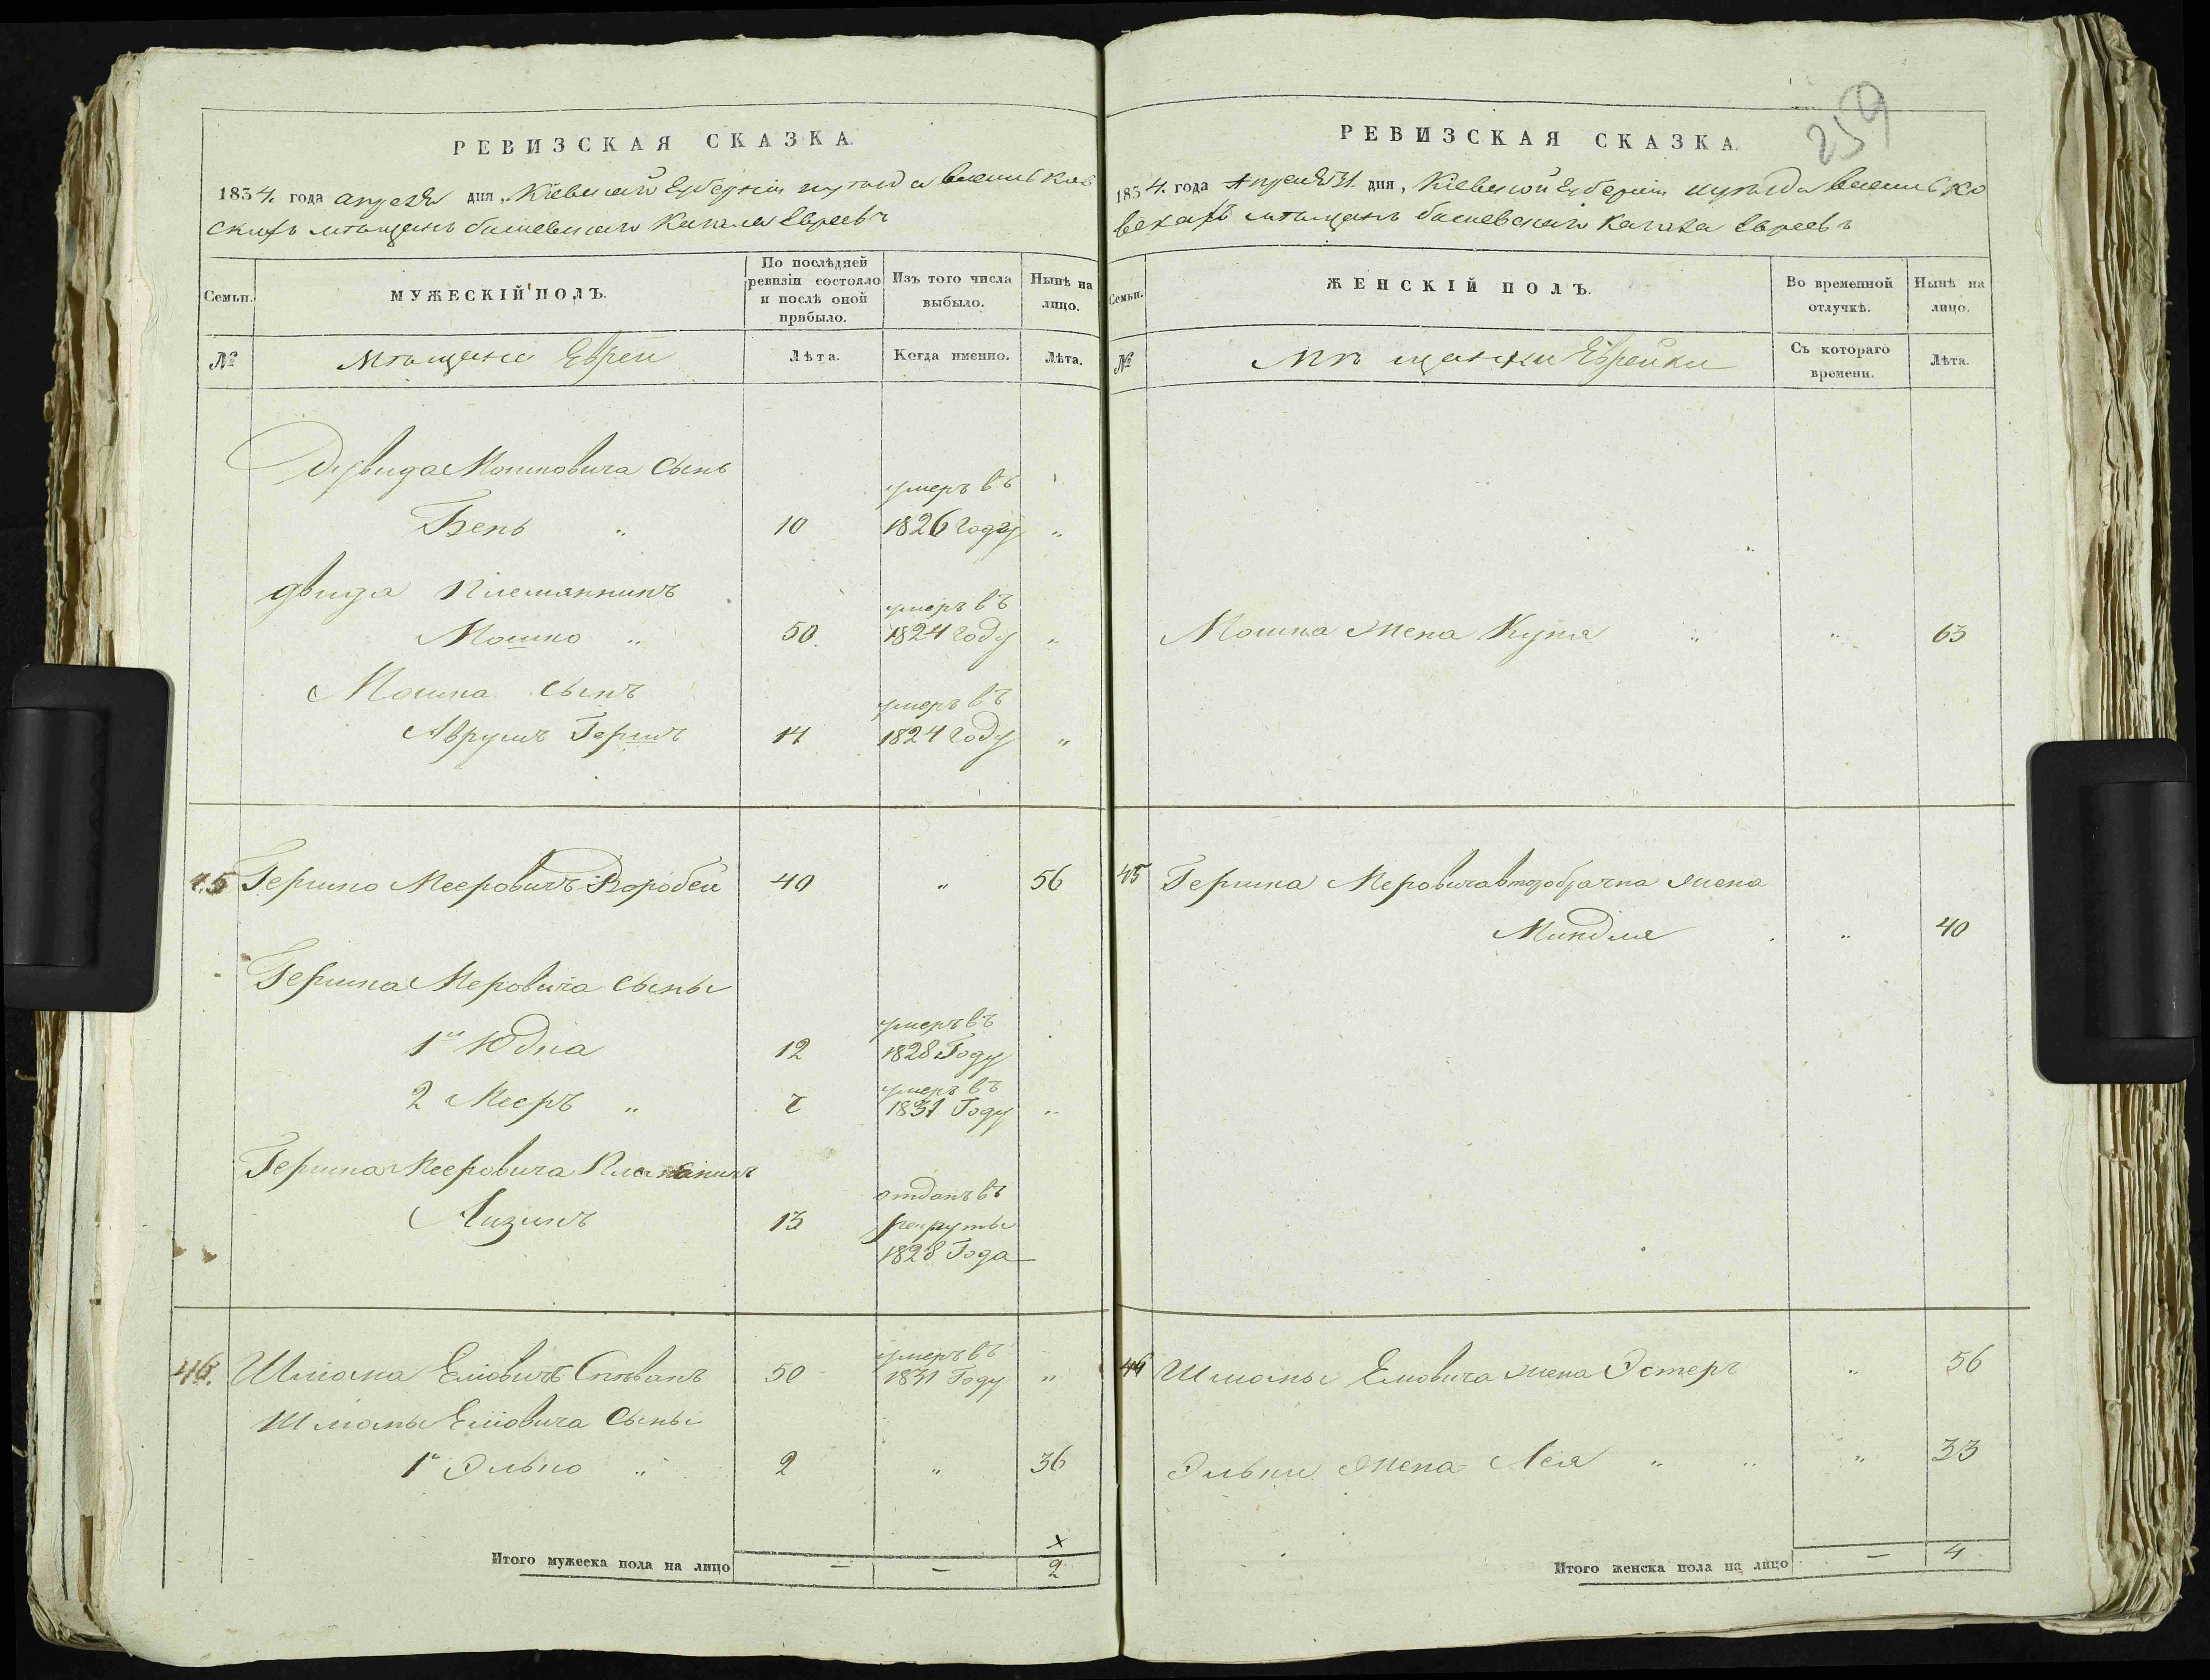 РЕВИЗСКАЯ СКАЗКА.
1834. года апреля дня, Кіевской Губерніи и уезда васильков
скихъ мѣщанъ Кагала Евреевъ
Семьи.
МУЖЕСКІЙ ПОЛЪ.
По послѣдней ревизіи состояло и послѣ оной прибыло.
Изъ того числа выбыло.
Нынѣ на лицо.
№
мѣщане Евреи
Лѣта.
Когда именно.
Лѣта.
Дувида Мошковича сынъ
умеръ въ
Бень " 10 1826 году "
двида Племянникъ
умеръ въ
Мошко " 50 1824 году "
Мошка сынъ
умеръ въ
Аврумъ Гершъ 14 1824 году "
45 Гершко Мееровичъ Воробей 40 " 56
Гершка Меровича сыны
умеръ въ
1й Юдка 12 1828 Году
умеръ въ
2 Мееръ " 7 1831 Году "
Гершка Мееровича
отданъ въ
Айзикъ 13 рекруты
1828 Года
умеръ въ
46. Шліома Еліовичъ Спѣвакъ 50 1831 Году "
Шліомы Еліовича сыны
1й Элько " 2 " 36
x
Итого мужеска пола на лицо — — 2
259
РЕВИЗСКАЯ СКАЗКА.
1834. года Апреля дня, Кіевской Губерніи и уезда василько
мѣщанъ Кагала Евреевъ
Семьи.
ЖЕНСКІЙ ПОЛЪ.
Во временной отлучкѣ.
Нынѣ на лицо.
№
Мѣщанки Еврейки
Съ котораго времени.
Лѣта.
Мошка жена Куня " " 63
45 Гершка Меровича второбрачна жена
Миндля " 40
46 Шліомы Еліовича жена Эстеръ " 56
Эльки жена Лея " " " 33
Итого женска пола на лицо — 4